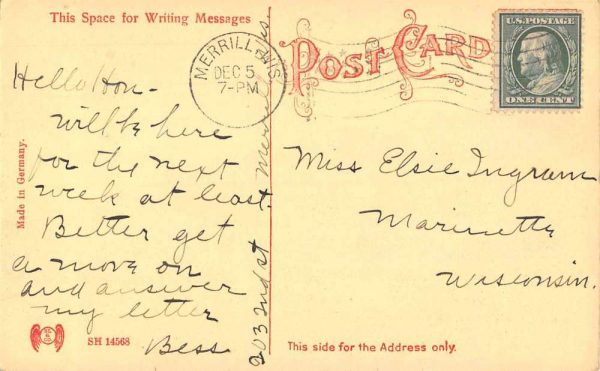 This Space for Writing Messages
POST CARD
U.S. POSTAGE
ONE CENT
MERRILL WIS.
DEC 5
7-PM
Hello Hon -
will be here
for the next
week at least.
Better get
a move on
and answer
my letter
Bess
203 2nd st Merrill Wis.
Miss Elsie Ingram
Marinette
Wisconsin.
Made in Germany.
SH 14568
This side for the Address only.